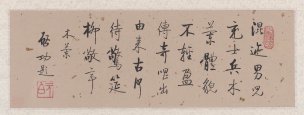 混迹男兒
充士兵木
蘭體貌
不輕盈
傳奇唱出
由来古
待驚筵
柳敬亭
木蘭
啟功題